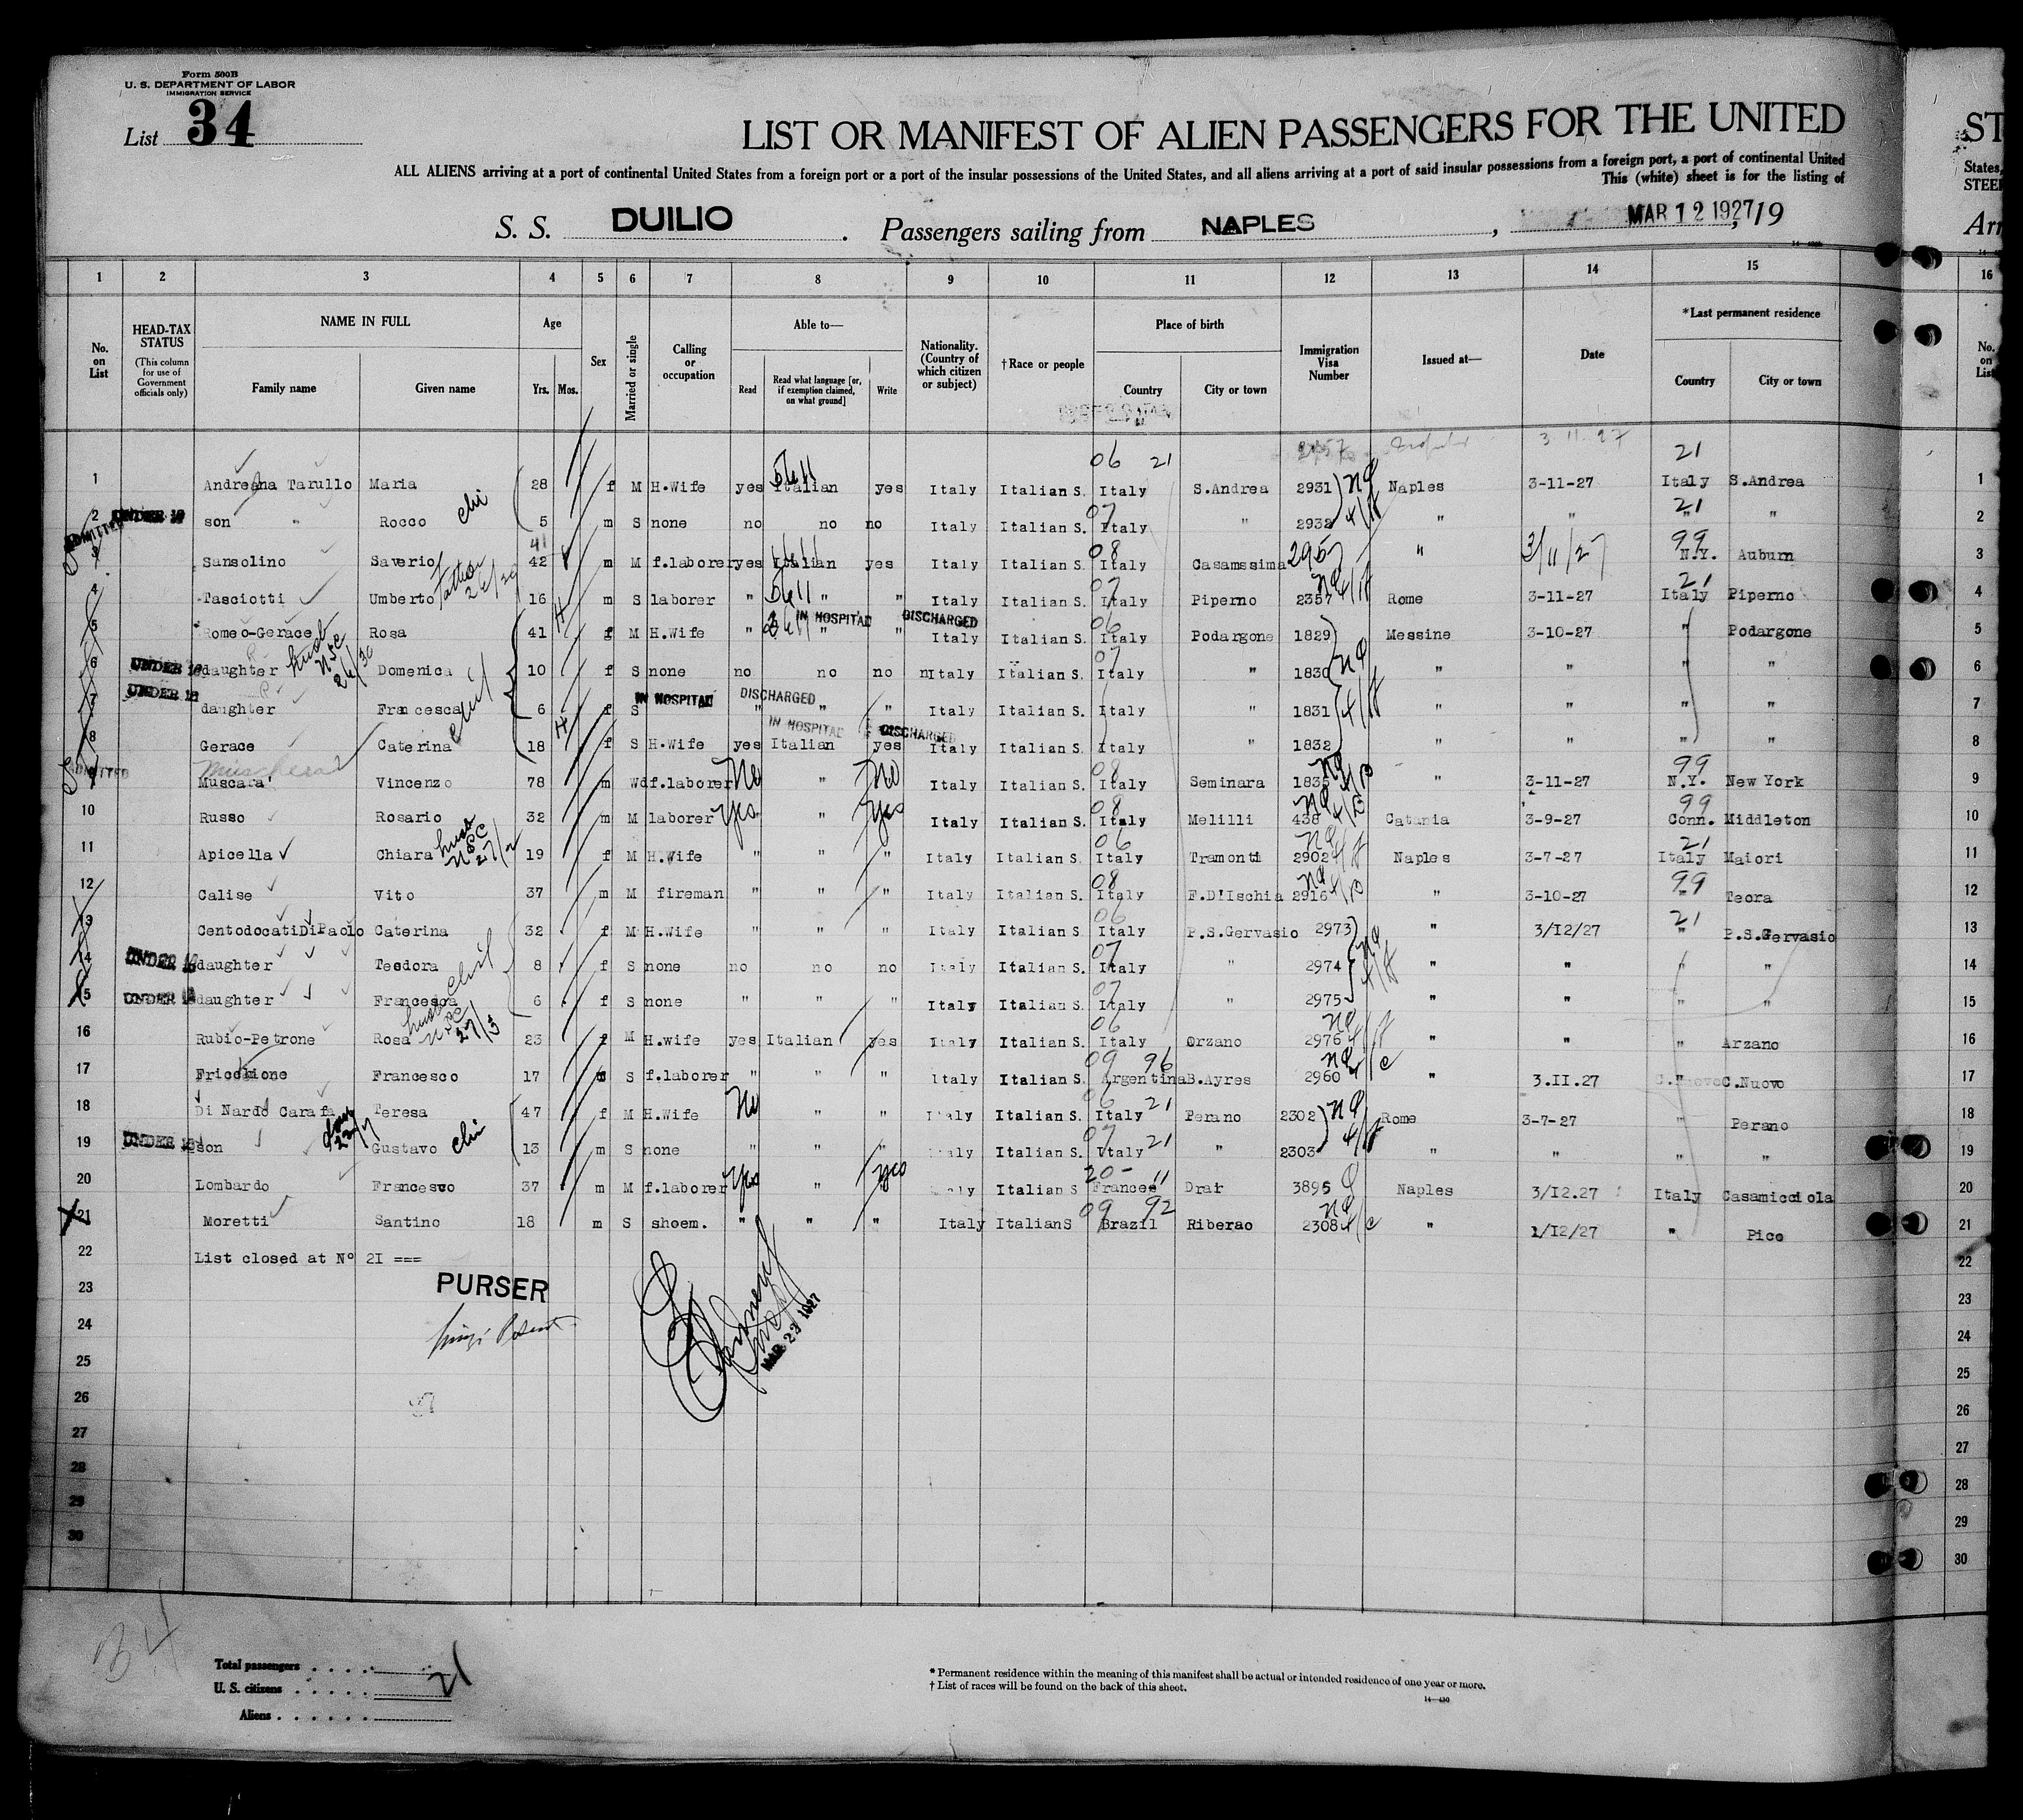 Form 500B
U. S. DEPARTMENT OF LABOR
IMMIGRATION SERVICE
List 34
LIST OR MANIFEST OF ALIEN PASSENGERS FOR THE UNITED
ST
ALL ALIENS arriving at a port of continental United States from a foreign port or a port of the insular possessions of the United States, and all aliens arriving at a port of said insular possessions from a foreign port, a port of continental United
States,
This (white) sheet is for the listing of
STEE
S. S. DUILIO. Passengers sailing from NAPLES, MAR 12 1927, 19
Arr
1 2 3 4 5 6 7 8 9 10 11 12 13 14 15 16
No. on List
HEAD-TAX STATUS (This column for use of Government officials only)
NAME IN FULL Family name Given name
Age Yrs. Mos.
Sex
Married or single
Calling or occupation
Able to— Read Read what language [or, if exemption claimed, on what ground] Write
Nationality. (Country of which citizen or subject)
†Race or people
Place of birth Country City or town
Immigration Visa Number
Issued at—
Date
*Last permanent residence Country City or town
No. on List
2357 3 11 27
06 21 21
1 Andreana Tarullo Maria 28 f M H.Wife yes Italian yes Italy Italian S. Italy S.Andrea 2931 Naples 3-11-27 Italy S.Andrea 1
2 UNDER 16 son " Rocco 5 m S none no no no Italy Italian S. 07 Italy " 2932 " " 21 " " 2
ADMITTED
3 Sansolino Saverio 41 42 m M f.laborer yes Italian yes Italy Italian S. 08 Italy Casamssima 2957 " 3/11/27 99 N.Y. Auburn 3
4 Tasciotti Umberto Father 26/30 16 m S laborer " " " Italy Italian S. 07 Italy Piperno 2357 Rome 3-11-27 21 Italy Piperno 4
IN HOSPITAL DISCHARGED
5 Romeo-Gerace Rosa 41 f M H.Wife " " " Italy Italian S. 06 Italy Podargone 1829 Messine 3-10-27 " Podargone 5
6 UNDER 16 daughter Domenica 10 f S none no no no Italy Italian S. 07 Italy " 1830 " " " " 6
IN HOSPITAL DISCHARGED
7 UNDER 16 daughter Francesca 6 f S " " " Italy Italian S. Italy " 1831 " " " " 7
IN HOSPITAL DISCHARGED
8 Gerace Caterina 18 f S H.Wife yes Italian yes Italy Italian S. Italy " 1832 " " " " 8
ADMITTED
9 Muscara' Vincenzo 78 m Wd f.laborer No " No Italy Italian S. 08 Italy Seminara 1835 " 3-11-27 99 N.Y. New York 9
10 Russo Rosario 32 m M laborer Yes " Yes Italy Italian S. 08 Italy Melilli 438 Catania 3-9-27 99 Conn. Middleton 10
11 Apicella Chiara 19 f M H.Wife " " " Italy Italian S. 06 Italy Tramonti 2902 Naples 3-7-27 21 Italy Maiori 11
12 Calise Vito 37 m M fireman " " " Italy Italian S. 08 Italy F.D'Ischia 2916 " 3-10-27 99 " Teora 12
13 CentodocatiDiPaolo Caterina 32 f M H.Wife " " " Italy Italian S. 06 Italy P.S.Gervasio 2973 " 3/12/27 21 " P.S.Gervasio 13
14 UNDER 16 daughter Teodora 8 f S none no no no Italy Italian S. 07 Italy " 2974 " " " " 14
15 UNDER 16 daughter Francesca 6 f S none " " " Italy Italian S. 07 Italy " 2975 " " " " 15
16 Rubio-Petrone Rosa 23 f M H.wife yes Italian yes Italy Italian S. 06 Italy Orzano 2976 " " " Arzano 16
17 Fricchione Francesco 17 S f.laborer " " " Italy Italian S. 09 96 Argentina B.Ayres 2960 " 3.II.27 C.Nuovo C.Nuovo 17
18 Di Nardo Carafa Teresa 47 f M H.Wife No " " Italy Italian S. 06 Italy 21 Perano 2302 Rome 3-7-27 " Perano 18
19 UNDER 16 son Gustavo 13 m S none " " " Italy Italian S. 07 Italy 21 " 2303 " " " " 19
20 Lombardo Francesco 37 m M f.laborer Yes " yes Italy Italian S 20- 11 Francee Drar 3895 Naples 3/I2.27 Italy Casamicciola 20
21 Moretti Santino 18 m S shoem. " " " Italy ItalianS 09 92 Brazil Riberao 2308 " 1/12/27 " Pico 21
22 List closed at No 2I === 22
23 PURSER 23
24 24
MAR 23 1927
25 25
26 26
27 27
28 28
29 29
30 30
34
Total passengers 21
U. S. citizens
Aliens
* Permanent residence within the meaning of this manifest shall be actual or intended residence of one year or more.
† List of races will be found on the back of this sheet.
14—430